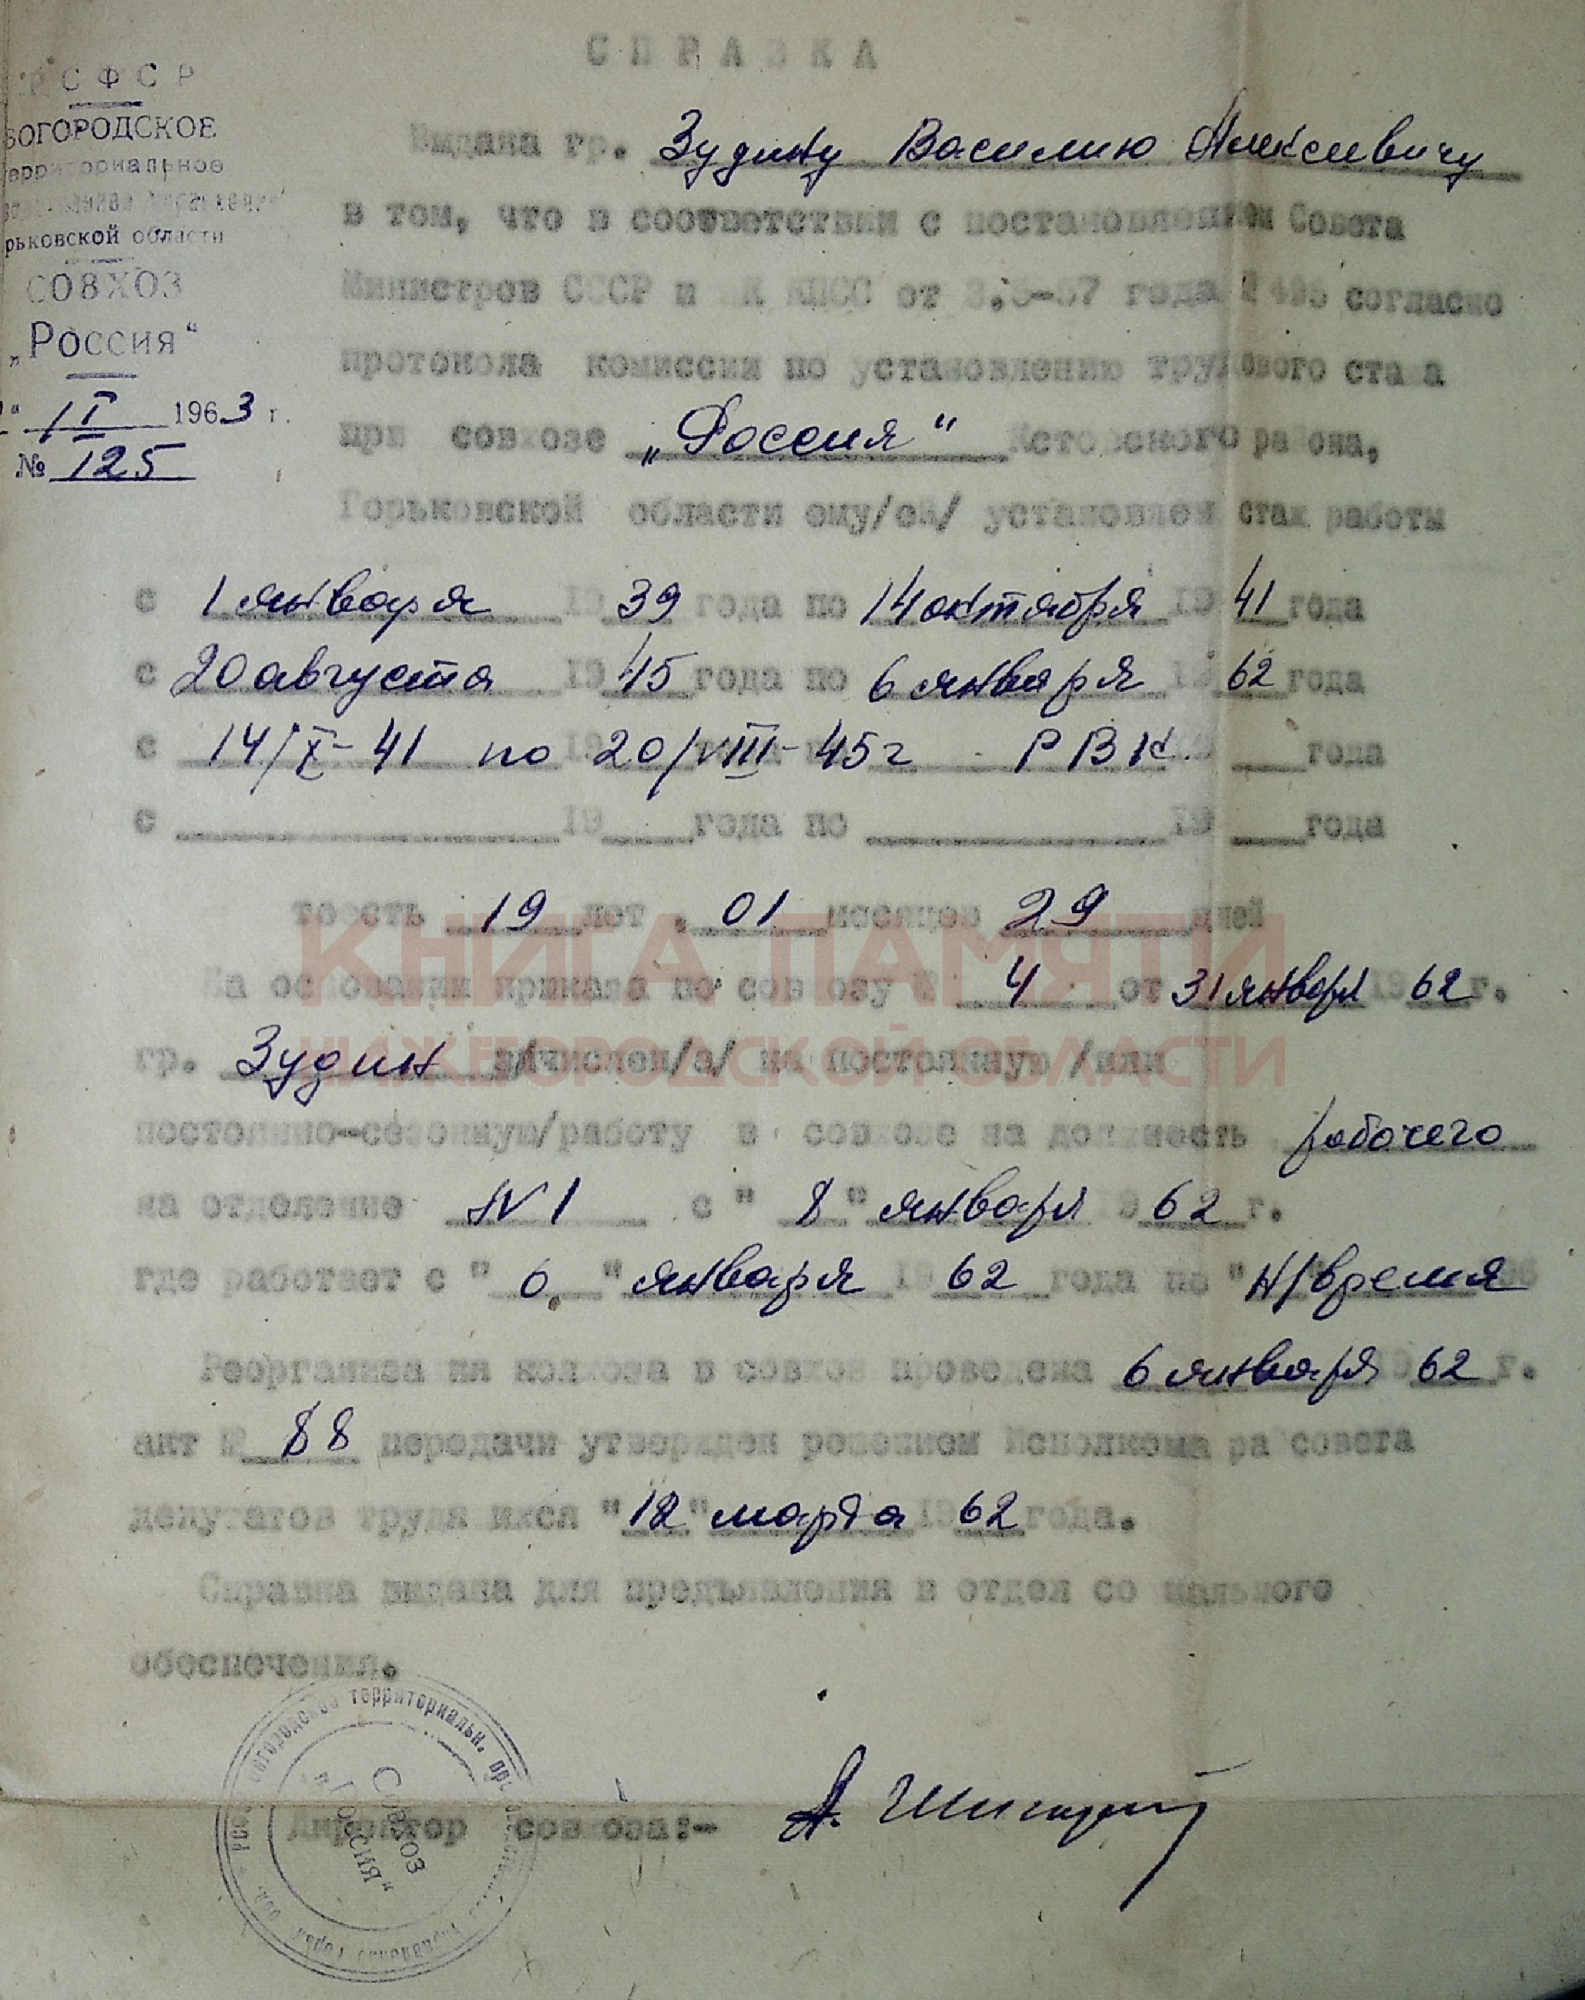 СПРАВКА
РСФСР
БОГОРОДСКОЕ
территориальное
рьковской области
СОВХОЗ
„Россия“
" II 1963 г.
№ 125
Выдана гр. Зудину Василию Алексеевичу
в том, что в соответствии с постановлением Совета
Министров СССР и ЦК КПСС от 495 согласно
протокола комиссии по установлению трудового стажа
при совхозе „Россия“ района,
Горьковской области ему/ей/ установлен стаж работы
с 1 января 19 39 года по 14 октября 19 41 года
с 20 августа 19 45 года по 6 января 19 62 года
с 14/X-41 по 20/VIII-45г РВК. 19 года
с 19 года по 19 года
то есть 19 лет 01 месяцев 29 дней
На основании приказа по совхозу № 4 от 31 января 19 62 г.
гр. Зудин зачислен/а/ на постоянную /или
постоянно-сезонную/работу в совхозе на должность рабочего
на отделение N 1 с " 8 " января 19 62 г.
где работает с " 6 " января 19 62 года по " н/время
Реорганизация колхоза в совхоз проведена 6 января 19 62 г.
акт № 88 передачи утвержден решением Исполкома рай совета
депутатов трудящихся " 12 " марта 19 62 года.
Справка выдана для предъявления в отдел социального
обеспечения.
Директор совхоза:-
Совхоз
„Россия“
КНИГА ПАМЯТИ
НИЖЕГОРОДСКОЙ ОБЛАСТИ